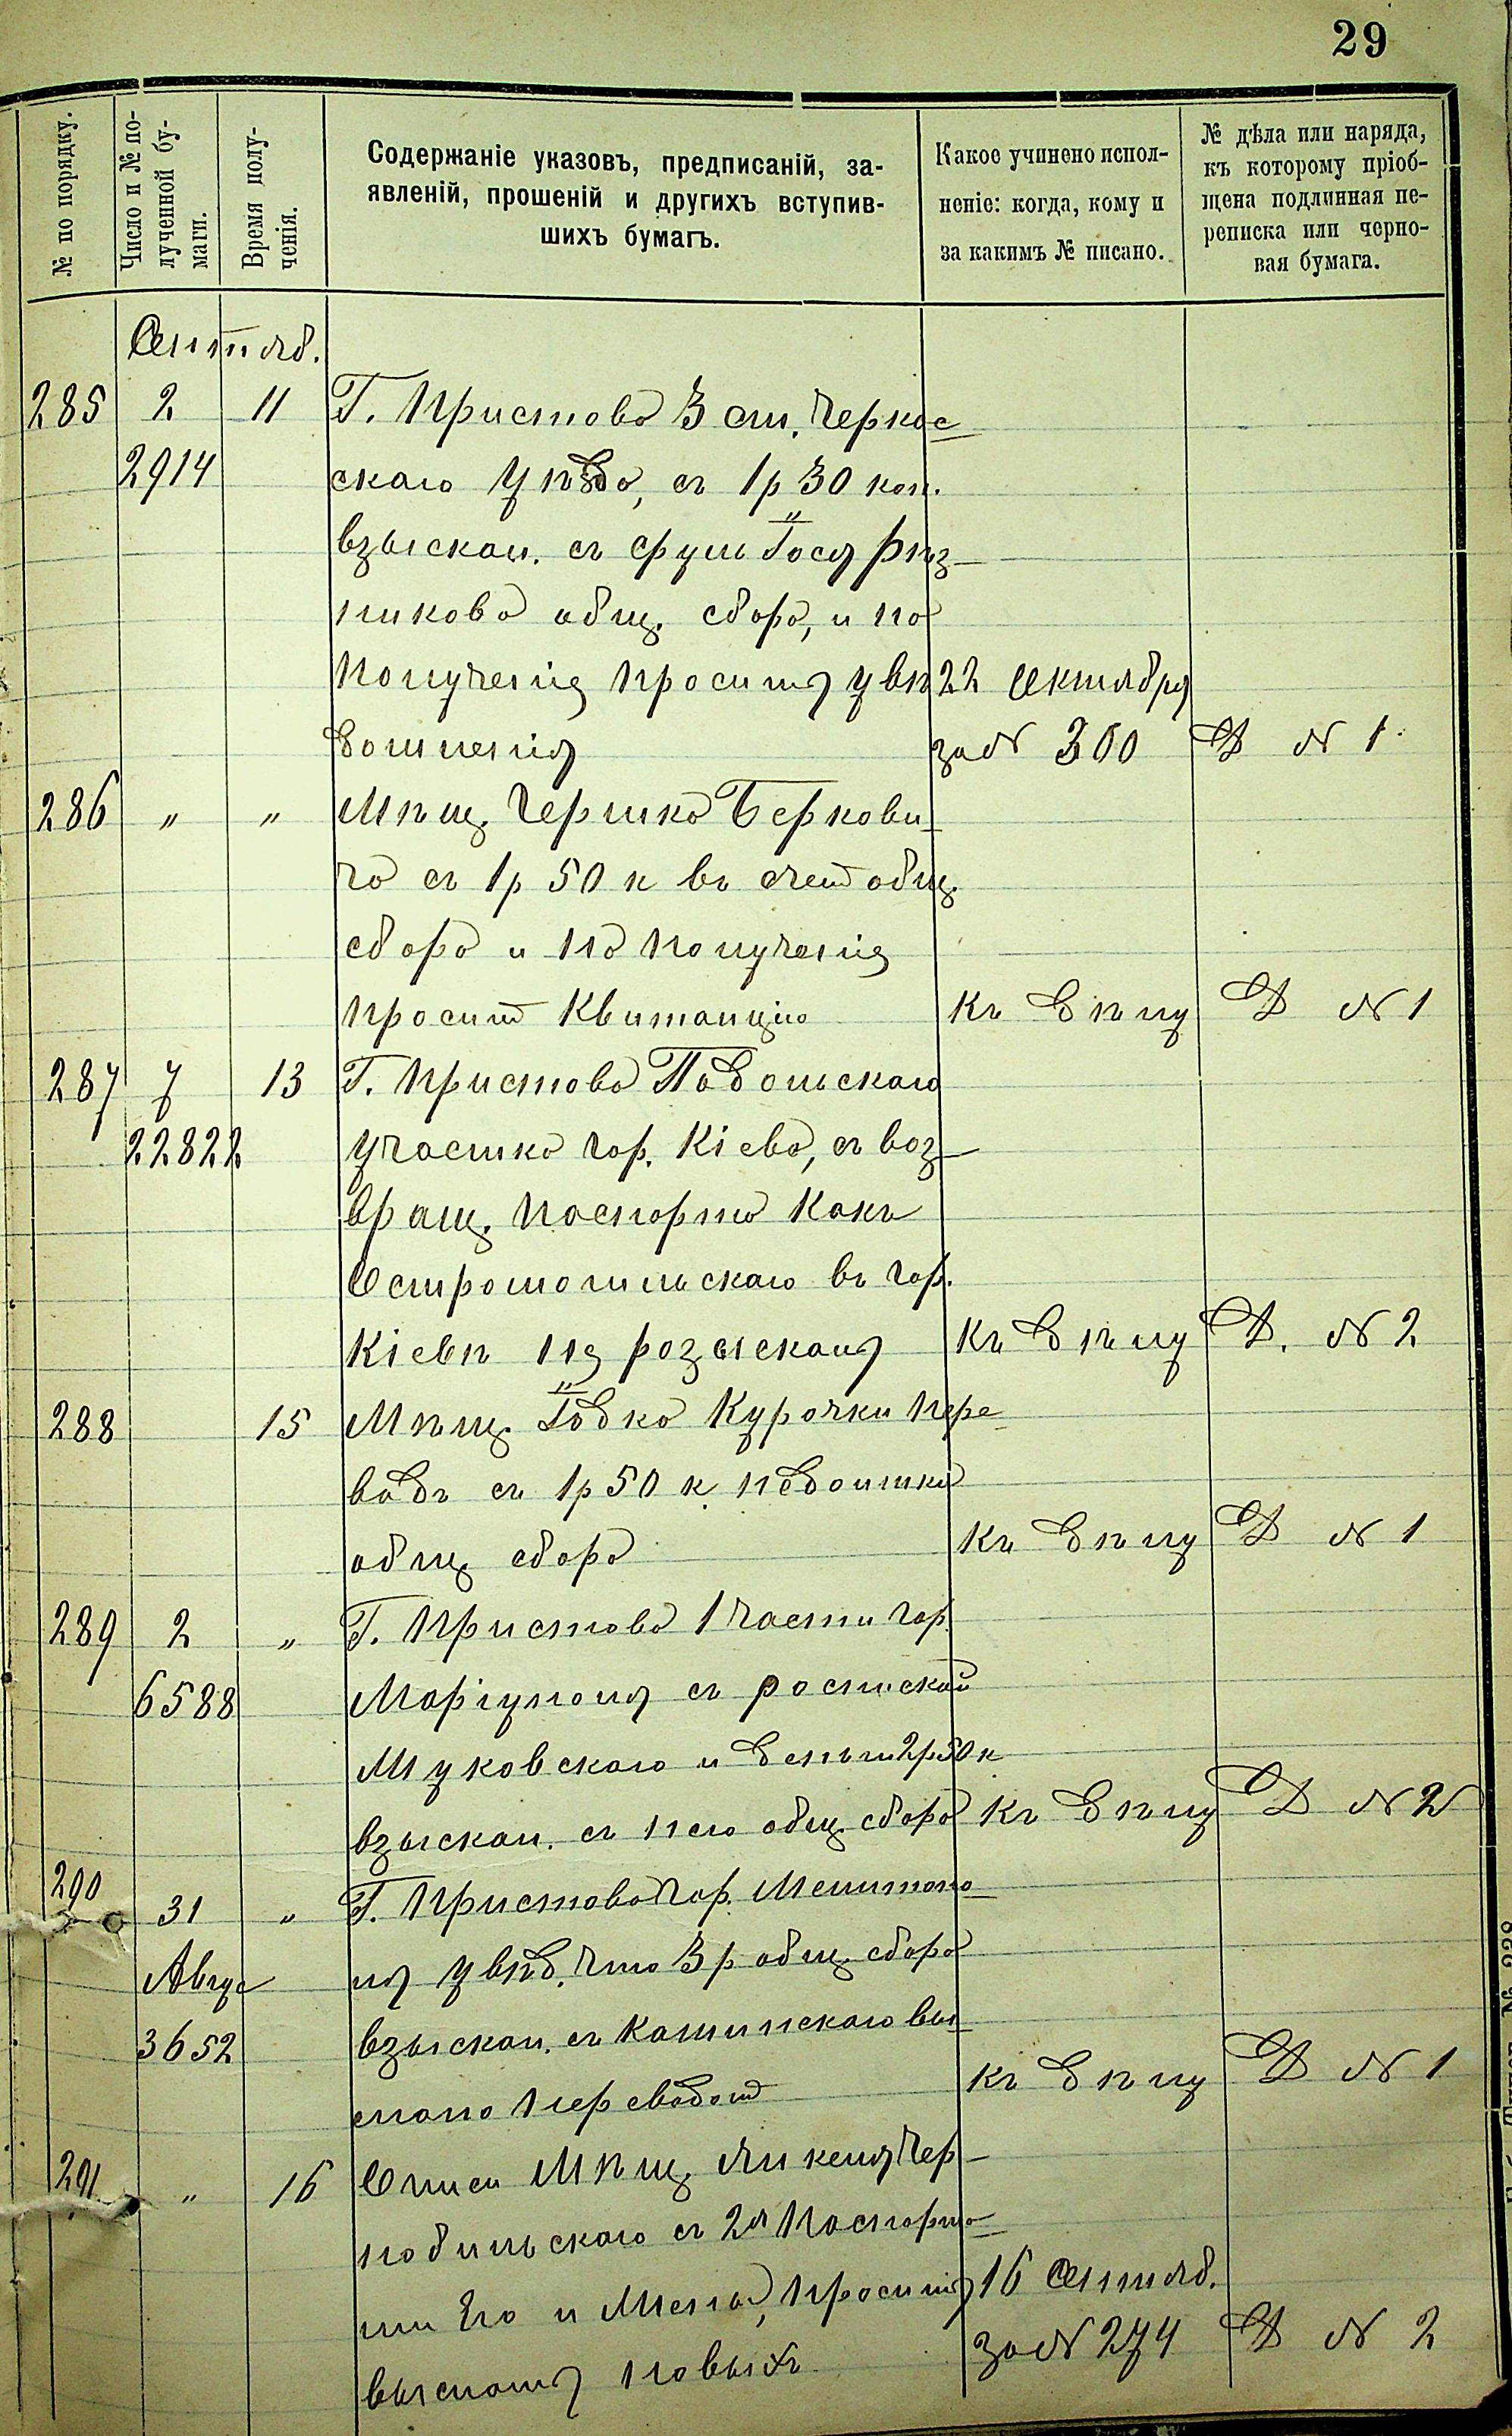 29
№ по порядку.
Число и № по-
лученной бу-
маги.
Время полу-
ченія.
Содержаніе указовъ, предписаній, за-
явленій, прошеній и другихъ вступив-
шихъ бумагъ.
Какое учинено испол-
неніе: когда, кому и
за какимъ № писано.
№ дѣла или наряда,
къ которому пріоб-
щена подлинная пе-
реписка или черно-
вая бумага.
Сентяб.
285 2 11 Г. Пристова 3 ст. Черкас-
2914 скаго уѣзда, съ 1 р 30 коп.
взыскан. съ Рѣз-
никова общ. сбора, и по
полученія проситъ увѣ- 22 Октября
домленія за № 300 Д № 1
286 " " Мѣщ. Гершка Беркови-
ча съ 1 р 50 к въ счет общ.
сбора и по полученія
просит квитанцію къ дѣлу Д № 1
287 7 13 Г. Пристова Подольскаго
22822 участка гор. Кіева, съ воз-
вращ. паспорта какъ
Остромогильскаго въ гор.
Кіевѣ не розыскан къ дѣлу Д. № 2
288 15 Мѣщ. Курочки пере-
водъ съ 1 р 50 к недоимки
общ сбора къ дѣлу Д № 1
289 2 " Г. Пристова 1 части гор.
6588 Маріуполя съ роспиской
Муковскаго и денегъ 2 р 50 к
взыскан. съ него общ. сбора къ дѣлу Д № 2
290 31 " Г. Пристова гор. Мелитопо-
Авгус ля увѣд. что 3 р общ. сбора
3652 взыскан. съ Кашинскаго вы-
слано переводом къ дѣлу Д № 1
291 " 16 Опись Мѣщ. Чер-
нобыльскаго съ 2я паспорта-
ми Его и Жены, проситъ 16 Сентяб.
выслать новыхъ за № 274 Д № 2